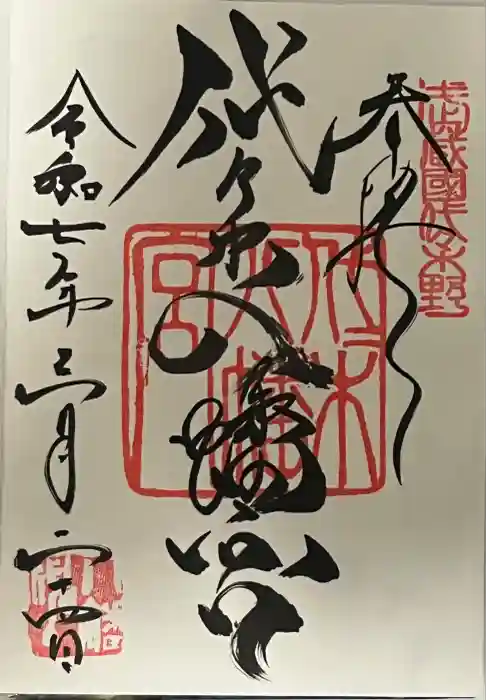 武蔵國代々木野
参拝
代々木八幡宮
代々木
八幡
宮
令和七年三月二十四日